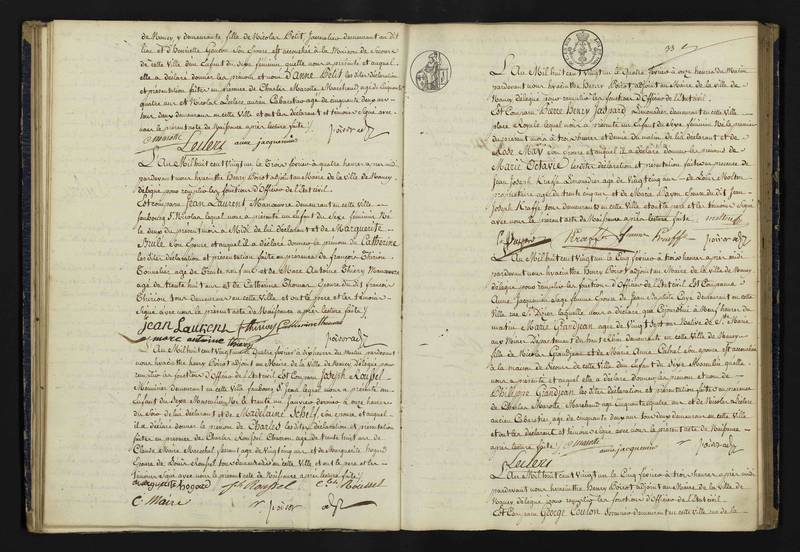 de Nancy y demeurante fille de Nicolas Petit, Journalier demeurant au dit
lieu et d'Henriette son épouse est accouchée à la Maison de Secours
de cette Ville d'un Enfant du Sexe féminin, qu'elle nous a présenté et auquel
elle a déclaré donner les prénoms et nom d'Anne Petit les dites déclaration
et présentation faites en présence de Charles Marotte Marchand agé de cinquante
quatre ans et Nicolas Leclers ancien Cabaretier agé de cinquante deux ans
tous deux demeurant en cette Ville et ont les déclarant et témoins Signé avec
nous le présent acte de Naissance après lecture faite.
Marotte
Leclers anne jacquemin
poirot adjt
L'An Mil huit cent Vingt un le Trois février à quatre heures après midi
pardevant nous hyacinthe Henry Poirot adjoint au Maire de la Ville de Nancy,
délégué pour remplir les fonctions d'Officier de l'État civil.
Est comparu Jean Laurent, Manoeuvre demeurant en cette Ville
faubourg St Nicolas lequel nous a présenté un Enfant du Sexe féminin Né
le deux du présent mois à Midi de lui déclarant et de Marguerite
son Epouse et auquel il a déclaré donner le prénom de Catherine
les dites déclaration et présentation faites en présence de François Thirion
Tonnelier agé de Trente neuf ans et de Marc Antoine Thiery Manoeuvre
agé de trente huit ans et de Catherine Thomas Epouse du dit François
Thirion tous demeurant en cette Ville et ont le père et les témoins
Signé avec nous le présent acte de Naissance après lecture faite.
Jean Laurent f thirion Catherine thomas
marc antoine thiery
poirot adjt
L'An Mil huit cent Vingt un le Quatre février à dix heures du Matin pardevant
nous hyacinthe Henry Poirot adjoint au Maire de la Ville de Nancy délégué pour
remplir les fonctions d'Officier de l'État civil Est Comparu Joseph Roussel
demeurant en cette Ville faubourg St Jean lequel nous a présenté un
Enfant du Sexe Masculin Né le trente un Janvier dernier à onze heures
du Soir de lui déclarant et de Madelaine Schels son épouse et auquel
il a déclaré donner le prénom de Charles les dites déclaration et présentation
faites en présence de Charles Roussel agé de trente huit ans de
Claude Maire Marechal ferrant agé de Vingt cinq ans et de Marguerite hogard
Epouse de Louis Roussel tous demeurant en cette Ville et ont le père et les
témoins Signé avec nous le présent acte de Naissance après lecture faite.
marguerite hogard Jh Roussel Ch. Roussel
C. Maire poirot adjt
33
L'An Mil huit cent Vingt un le Quatre février à onze heures du Matin
pardevant nous hyacinthe Henry Poirot adjoint au Maire de la Ville de
Nancy, délégué pour remplir les fonctions d'Officier de l'État civil.
Est Comparu Pierre Henry Jaspard Limonadier demeurant en cette Ville
place Royale lequel nous a présenté un Enfant du Sexe féminin Né le premier
du présent mois à trois heures et demie du matin de lui déclarant et de
Rose May son épouse et auquel il a déclaré donner les prénoms de
Marie Octavie les dites déclaration et présentation faites en présence de
Jean Joseph Kraffe Limonadier agé de Vingt cinq ans de Louis Molton
propriétaire agé de trente cinq ans et de Marie Epouse du dit Jean
Joseph Kraffe tous demeurant en cette Ville et ont le père et les témoins Signé
avec nous le présent acte de Naissance après lecture faite.
P. h Jaspard Kraffe femme Kraffe poirot adjt
L'An Mil huit cent Vingt un le Cinq février à trois heures après midi
pardevant nous hyacinthe Henry Poirot adjoint au Maire de la Ville de Nancy
délégué pour remplir les fonctions d'Officier de l'État civil Est Comparue
Anne Jacquemin Sage femme Epouse de Jean Baptiste demeurant en cette
Ville rue St Dizier laquelle nous a déclaré que Cejourd'hui à Neuf heures du
matin Marie Grandjean agée de Vingt Sept ans Native de Ste Marie
aux Mines département du haut Rhin demeurant en cette Ville de Nancy
fille de Nicolas Grandjean et de Marie Anne son épouse est accouchée
à la maison de Secours de cette Ville d'un Enfant du Sexe Masculin qu'elle
nous a présenté et auquel elle a déclaré donner les prénom et nom de
Philippe Grandjean les dites déclaration et présentation faites en présence
de Charles Marotte Marchand agé de Cinquante quatre ans et de Nicolas Leclers
ancien Cabaretier, agé de cinquante deux ans tous deux demeurant en cette Ville
et ont les déclarant et témoins Signé avec nous le présent acte de Naissance
après lecture faite. Marotte anne jacquemin poirot adjt
Leclers
L'An Mil huit cent Vingt un le Cinq février à trois heures après midi
pardevant nous hyacinthe Henry Poirot adjoint au Maire de la Ville de
Nancy, délégué pour remplir les fonctions d'Officier de l'État civil.
Est Comparu George Coulon demeurant en cette Ville rue de la